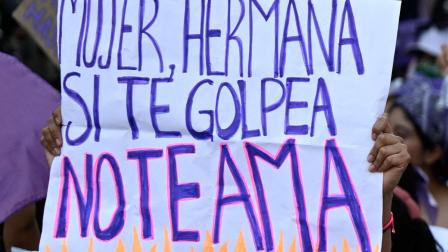 MUJER, HERMANA
SI TE GOLPEA
NO TE AMA